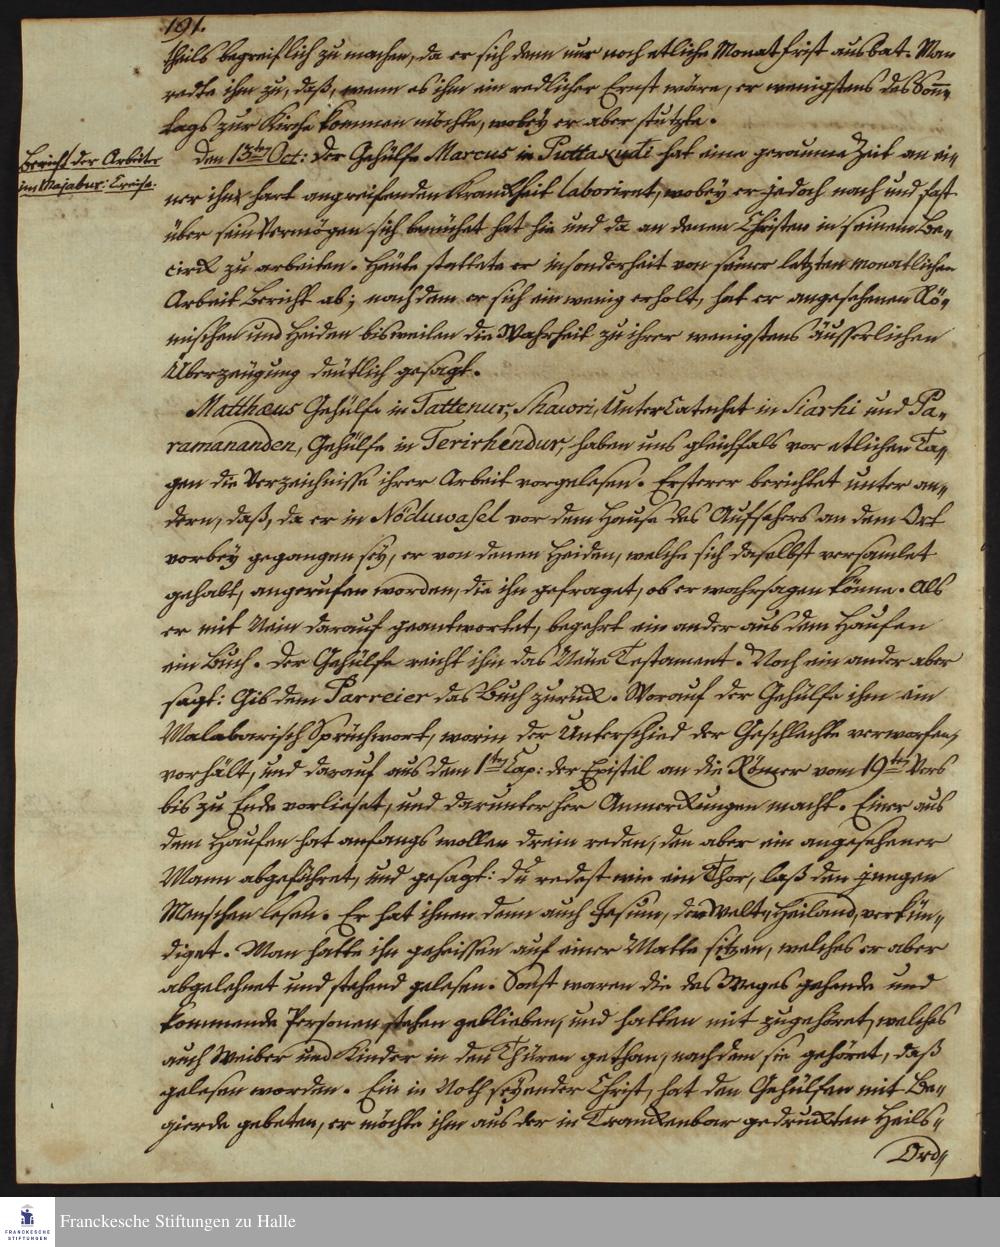 191.
theils begreiflich zu machen, da er sich denn nur noch etliche Monat frist ausbat. Man
redte ihm zu, daß, wenn es ihm ein redlicher Ernst wäre, er wenigstens des Sonn„
tags zur Kirche kommen möchte, wobey er aber stutzte.
Bericht der Arbeiter
im Majabur: Creise:
Den 13ten Oct: Der Gehülfe Marcus in Puttakudi hat eine geraume Zeit an ei„
ner ihn hart angreifenden Kranckheit laboriret, wobey er jedoch nach und fast
über sein Vermögen sich bemühet hat hie und da an denen Christen in seinem Be„
circk zu arbeiten. Heute stattete er insonderheit von seiner letzten monatlichen
Arbeit Bericht ab; nachdem er sich ein wenig erholt, hat er angesehenen Rö„
mischen und Heiden bisweilen die Wahrheit zu ihrer wenigstens äusserlichen
Überzeugung deutlich gesagt.
Matthæus Gehülfe in Tattenur, Shawri, Unter Catechet in Siarhi und Pa„
ramananden, Gehülfe in Terirhendur, haben uns gleichfals vor etlichen Ta„
gen die Verzeichnisse ihrer Arbeit vorgelesen. Ersterer berichtet unter an„
dern, daß, da er in Nöduwasel vor dem Hause des Aufsehers an dem Ort
vorbey gegangen sey, er von denen Heiden, welche sich daselbst versamlet
gehabt, angerufen worden, die ihn gefraget, ob er wahrsagen könne. Als
er mit Nein darauf geantwortet, begehrt ein ander aus dem Haufen
ein Buch. Der Gehülfe reicht ihm das Neue Testament. Noch ein ander aber
sagt: Gib dem Parreier das Buch zurück. Worauf der Gehülfe ihm ein
Malabarisch Sprüchwort, worin der Unterschied der Geschlechte verworfen,
vorhält, und darauf aus dem 1ten Cap: der Epistel an die Römer vom 19ten Vers
bis zu Ende vorlieset, und darunter her Anmerckungen macht. Einer aus
dem Haufen hat anfangs wollen drein reden, den aber ein angesehener
Mann abgeführet, und gesagt: du redest wie ein Thor, laß den jungen
Menschen lesen. Er hat ihnen denn auch Jesum, den Welt„Heiland, verkün„
diget. Man hatte ihn geheissen auf einer Matte sitzen, welches er aber
abgelehnet und stehend gelesen. Sonst waren die des Weges gehende und
kommende Personen stehen geblieben, und hatten mit zugehöret, welches
auch Weiber und Kinder in den Thüren gethan, nachdem sie gehöret, daß
gelesen worden. Ein in Noth seyender Christ, hat den Gehülfen mit Be„
gierde gebeten, er möchte ihm aus der in Tranckenbar gedruckten Heils„
Ord„
FRANCKESCHE
STIFTUNGEN
Franckesche Stiftungen zu Halle